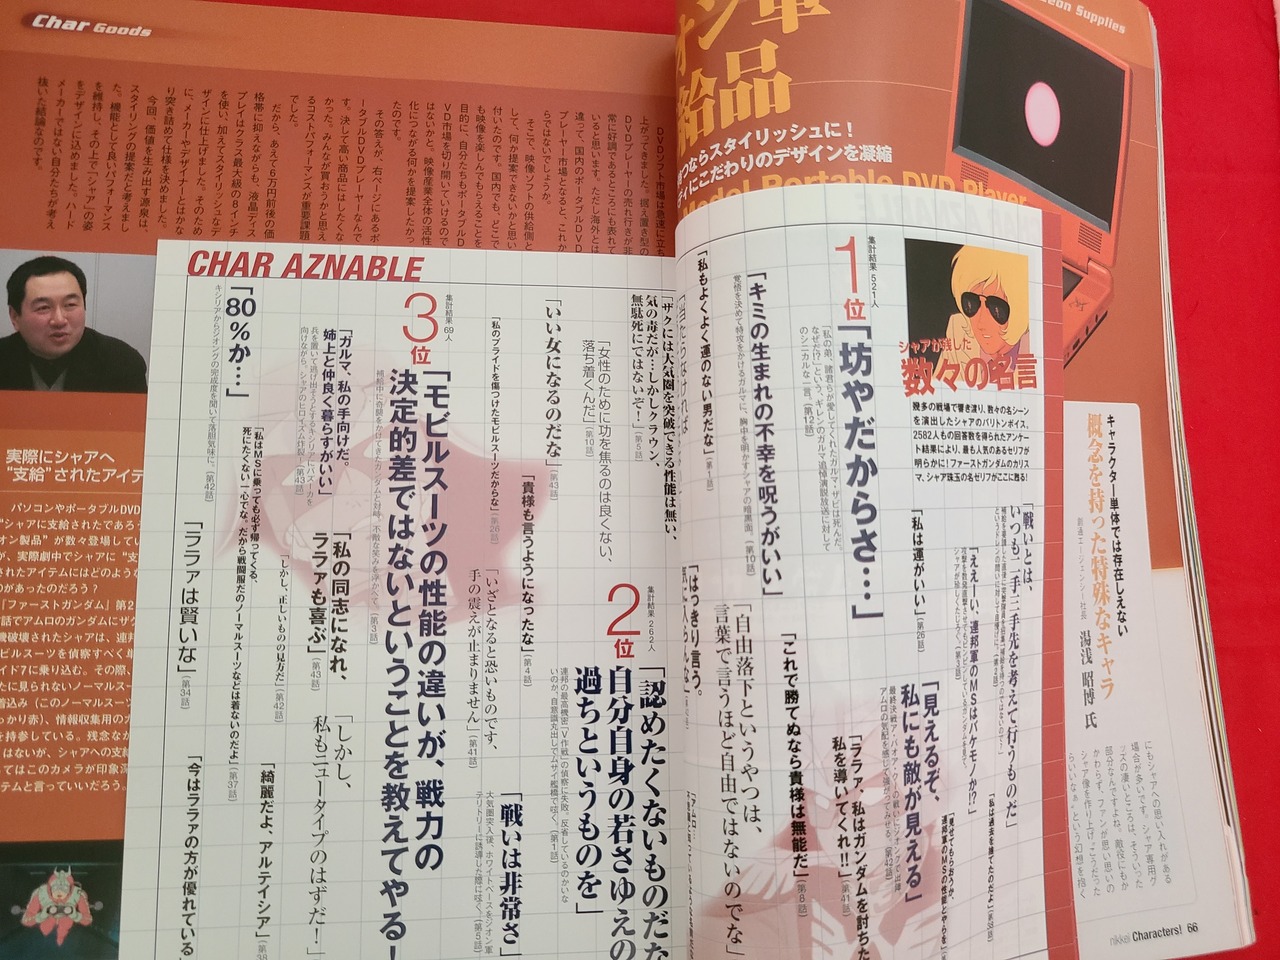 Char Goods
Zeon Supplies
オン軍
給品
つならスタイリッシュに！
にこだわりのデザインを凝縮
Model Portable DVD Player
DVDソフト市場は急速に立ち
上がってきました。据え置き型の
DVDプレーヤーの売れ行きが非
常に好調であるところにも表れて
いると思います。ただし海外とは
違って、国内のポータブルDVD
プレーヤー市場となると、これか
らではないでしょうか。
そこで、映像ソフトの供給側と
して、何か提案できないかと思い
付いたのです。国内でも、どこで
も映像を楽しんでもらえることを
目的に、自分たちもポータブルD
VD市場を切り開いていけるので
はないかと。映像産業全体の活性
化につながる何かを提案したかっ
たのです。
その答えが、右ページにあるポ
ータブルDVDプレーヤーなんで
す。決して高い商品にはしたくな
かった。みんなが買おうかと思え
るコストパフォーマンスが重要課題
でした。
だから、あえて6万円前後の価
格帯に抑えながらも、液晶ディス
プレイはクラス最大級の8インチ
を使い、加えてスタイリッシュなデ
ザインに仕上げました。そのため
に、メーカーやデザイナーとはかな
り突き詰めて仕様を決めました。
今回、価値を生み出す源泉は、
スタイリングの提案だと考えまし
た。機能として良いパフォーマンス
を維持し、その上で「シャア」の姿
をデザインに込めました。ハード
メーカーではない自分たちが考え
抜いた結論なのです。
実際にシャアへ
“支給”されたアイテ
パソコンやポータブルDVD
“シャアに支給されたであろう
オン製品”が数々登場してい
が、実際劇中でシャアに“支
されたアイテムにはどのような
のがあったのだろう？
『ファーストガンダム』第2
話でアムロのガンダムにザク
機破壊されたシャアは、連邦
ビルスーツを偵察すべく単
イド7に乗り込む。その際、
たに見られないノーマルスー
着込み（このノーマルスーツ
っかり赤）、情報収集用のカ
を持参している。残念なが
はないが、シャアへの支給
てはこのカメラが印象深
テムと言っていいだろう。
CHAR AZNABLE
シャアが残した
数々の名言
幾多の戦場で響き渡り、数々の名シーン
を演出したシャアのバリトンボイス。
2582人もの回答数を得られたアンケー
ト結果により、最も人気のあるセリフが
明らかに！ファーストガンダムのカリス
マ、シャア珠玉の名ゼリフがここに甦る！
集計結果 521人
1位「坊やだからさ…」
「私の弟、諸君らが愛してくれたガルマ・ザビは死んだ、
なぜだ!?」という、ギレンのガルマ追悼演説放送に対して
のシニカルな一言。（第12話）
「キミの生まれの不幸を呪うがいい」
覚悟を決めて特攻をかけるガルマに、胸中を明かすシャアの暗黒面。（第10話）
「私もよくよく運のない男だな」（第1話）
「戦いとは、
いつも二手三手先を考えて行うものだ」
「ええーい、連邦軍のMSはバケモノか!?」
「私は運がいい」（第26話）
「見えるぞ、
私にも敵が見える」
「私は過去を捨てたのだよ」（第38話）
見せてもらおうか、
連邦軍のMSの性能とやらを」
「ララァ、私はガンダムを討ちた
私を導いてくれ!!」（第41話）
「これで勝てぬなら貴様は無能だ」（第6話）
「自由落下というやつは、
言葉で言うほど自由ではないのでな」
「はっきり言う。
気に入らんな」
「当たらなければ
「ザクには大気圏を突破できる性能は無い、
気の毒だが…しかしクラウン、
無駄死にではないぞ！」（第5話）
「女性のために功を焦るのは良くない、
落ち着くんだ」（第10話）
「いい女になるのだな」（第43話）
「私のプライドを傷つけたモビルスーツだからな」（第26話）
集計結果 262人
2位「認めたくないものだな
自分自身の若さゆえの
過ちというものを」
連邦の最高機密「V作戦」の偵察に失敗。反省しているのかいな
いのか、自意識丸出しでムサイ艦橋で呟く。（第1話）
「貴様も言うようになったな」（第4話）
「いざとなると恐いものです、
手の震えが止まりません」（第41話）
「戦いは非常さ
大気圏突入後、ホワイトベースをジオン軍
テリトリーに誘導した際に呟く。（第5話）
集計結果 69人
3位「モビルスーツの性能の違いが、戦力の
決定的差ではないということを教えてやる！
補給中に奇襲をかけてきたガンダムと対峙。不敵な笑みを浮かべて。（第3話）
「ガルマ、私の手向けだ。
姉上と仲良く暮らすがいい」
兵を置いて逃げ出そうとするキシリアにバズーカを
向けながら。シャアのヒロイズム炸裂！（第43話）
「私の同志になれ、
ララァも喜ぶ」（第43話）
「しかし、正しいものの見方だ」（第42話）
「しかし、
私もニュータイプのはずだ！」
「80％か…」
キシリアからジオングの完成度を聞いて落胆気味に。（第42話）
「私はMSに乗っても必ず帰ってくる、
死にたくない一心でな。だから戦闘服だのノーマルスーツなどは着ないのだよ」（第37話）
「綺麗だよ、アルテイシア」（第38
「ララァは賢いな」（第34話）
「今はララァの方が優れている
キャラクター単体では存在しえない
概念を持った特殊なキャラ
創通エージェンシー社長　湯浅 昭博 氏
にもシャアへの思い入れがある
場合が多いです。シャア専用グ
ッズの凄いところは、そういった
部分なんですよね。敵役にもか
かわらず、ファンが思い思いの
シャア像を作り上げ“こうだった
らいいなぁ”という幻想を抱く
nikkei Characters! 66